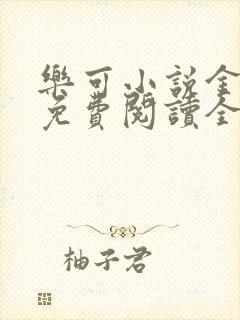 樂可小說全
免費閱讀全
柚子君